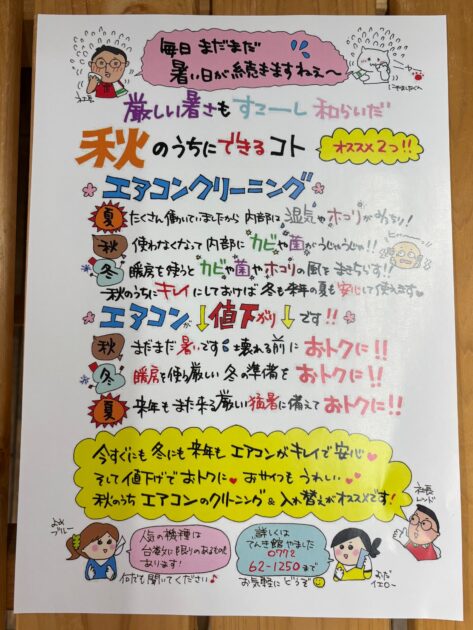 毎日 まだまだ
暑い日が続きますねぇ〜
厳しい暑さも すこーし 和らいだ
秋のうちにできるコト
オススメ2つ!!
エアコンクリーニング
夏 たくさん働いていましたから 内部は湿気やホコリがめちり!
秋 使わなくなって内部に カビや菌がうじゃうじゃ!!
冬 暖房を使うと カビや菌やホコリの風をまきちらす!!
秋のうちに キレイ にしておけば 冬も来年の夏も安心して使えます
エアコンが ↓値下がり↓ です!!
秋 まだまだ 暑いです 壊れる前に おトクに!!
冬 暖房を使う厳しい 冬の準備を おトクに!!
夏 来年もまた来る厳しい猛暑に備えて おトクに!!
今すぐにも 冬にも 来年も エアコンがキレイで安心
そして 値下げで おトクに おサイフも うれしい
秋のうち エアコンのクリーニング & 入れ替えがオススメです!
社長
レッド
ブルー
人気の機種は
台数に限りのあるものも
あります!
何でも聞いてください♪
詳しくは
でんき館 やました
0772
62-1250まで
お気軽に どうぞ
イエロー